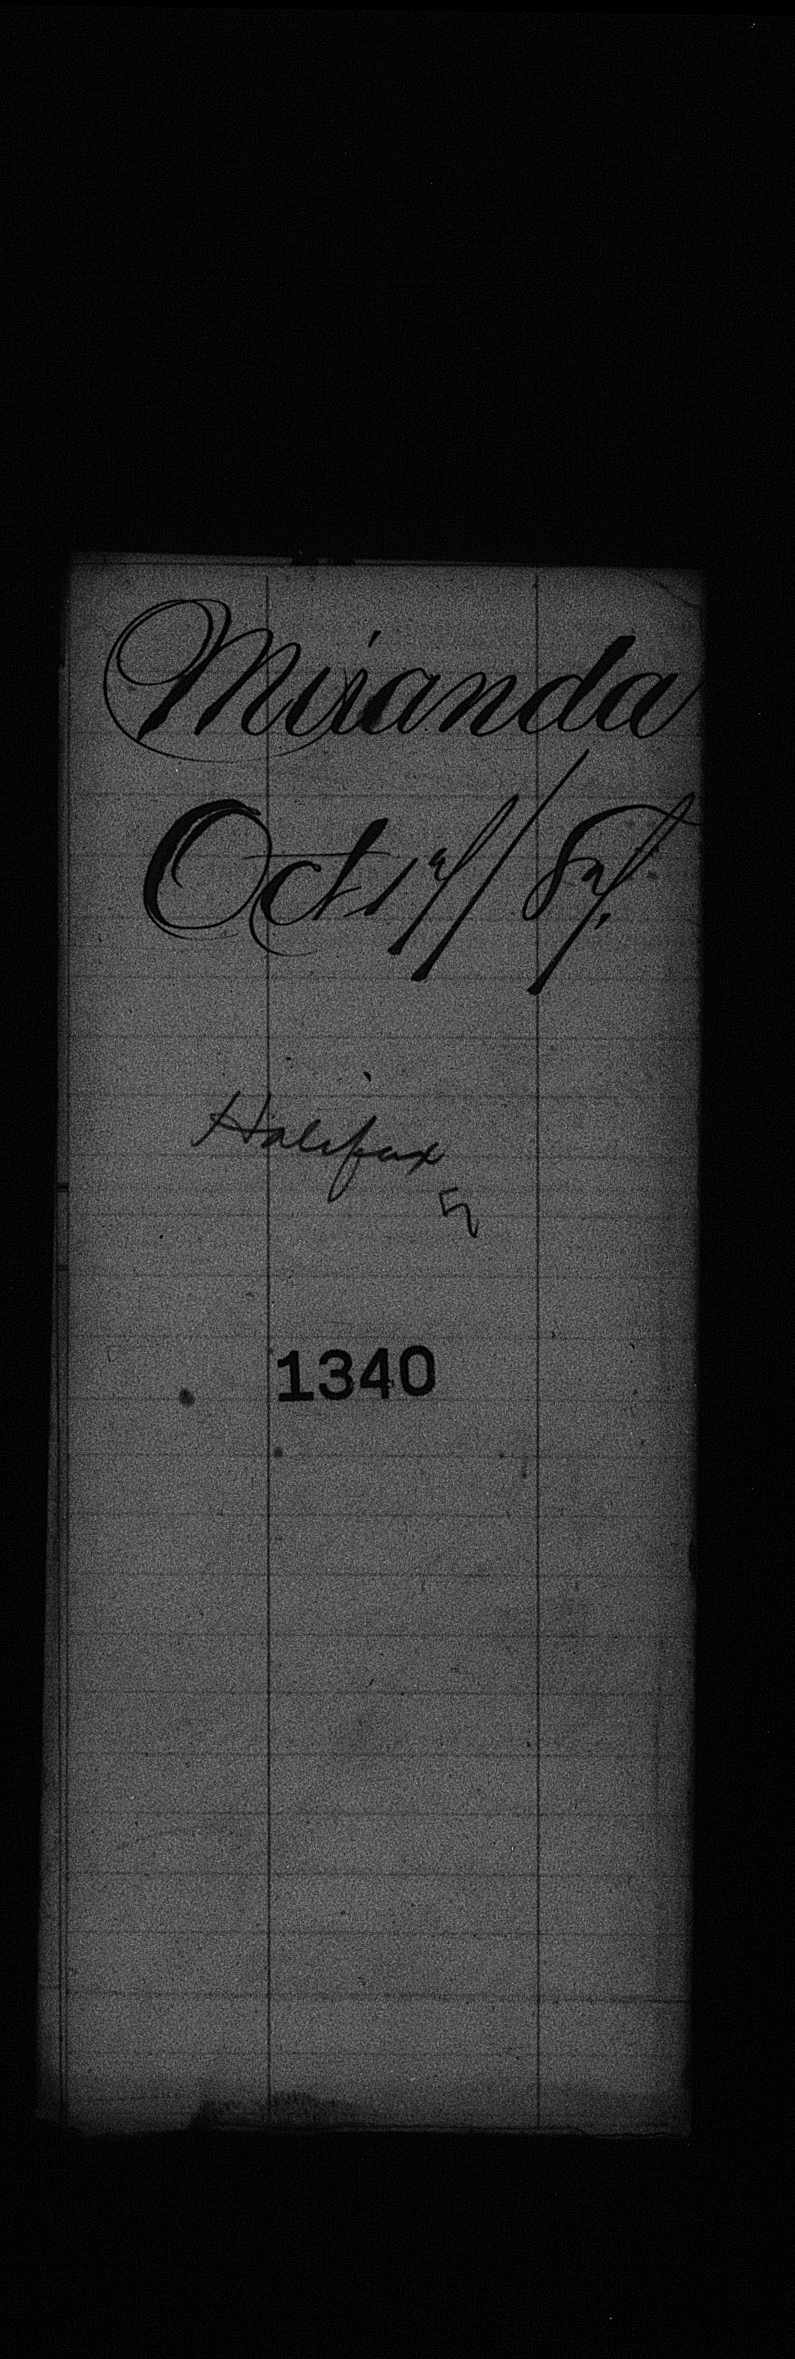 Miranda
Oct 17/87.
Halifax
5
1340